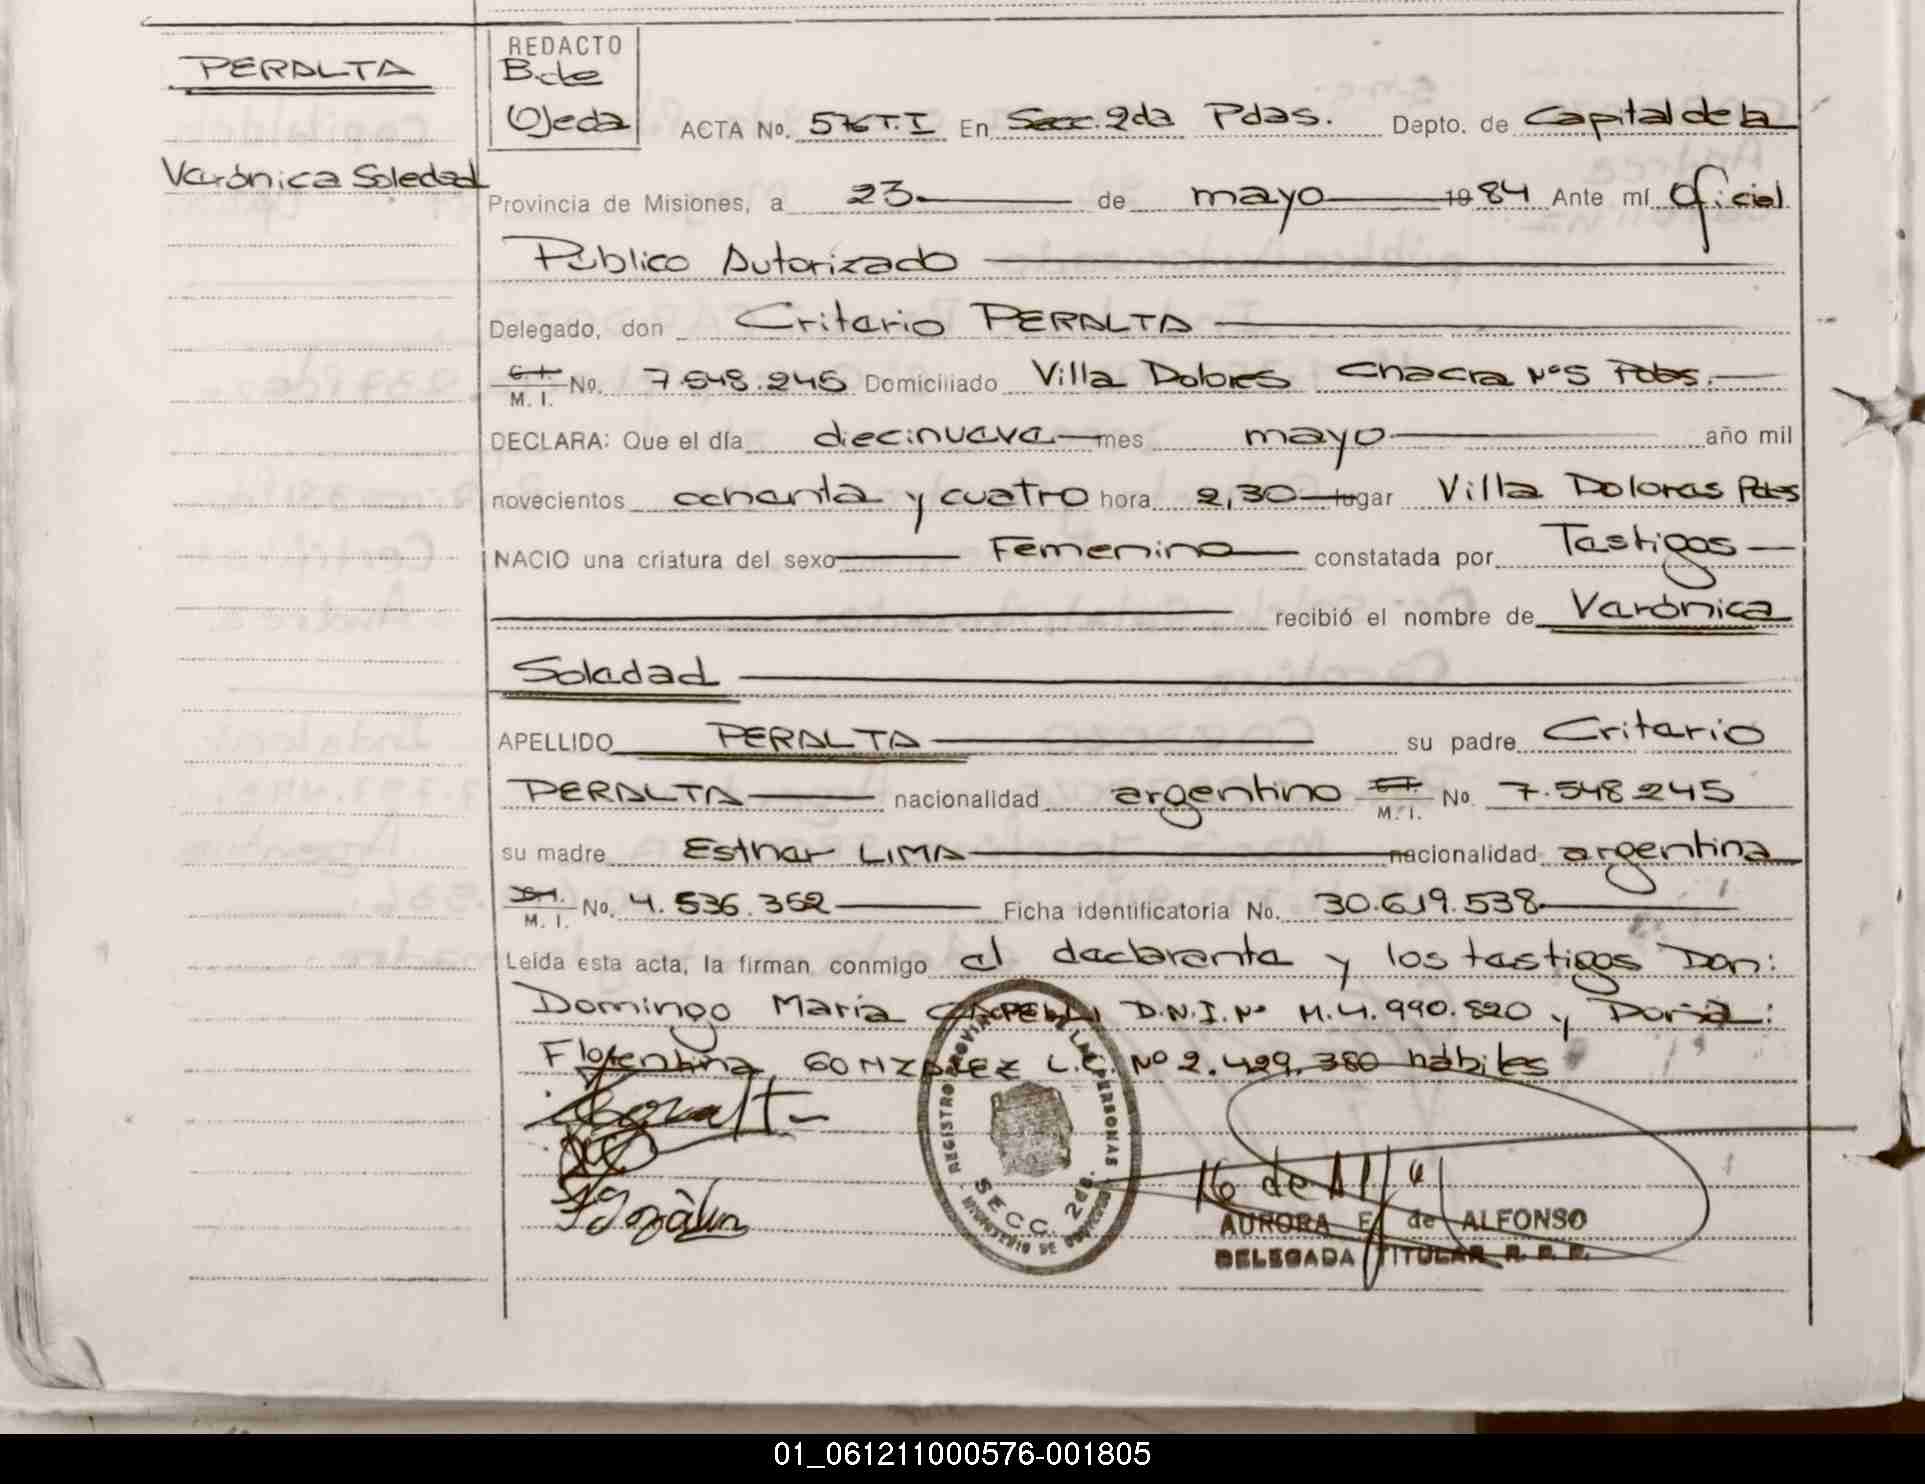 PERALTA
Verónica Soledad
REDACTO
B.de
Ojeda
ACTA No. 576 T.I En Secc. 2da Pdas. Depto. de Capital de la
Provincia de Misiones, a 23 de mayo 1984 Ante mí Oficial
Público Autorizado
Delegado, don Criterio PERALTA
C.I.
M. I. No. 7.548.245 Domiciliado Villa Dolores Chacra Nº5 Pdas.
DECLARA: Que el día diecinueve mes mayo año mil
novecientos ochenta y cuatro hora 2,30 lugar Villa Dolores Pdas
NACIO una criatura del sexo Femenino constatada por Testigos
recibió el nombre de Verónica
Soledad
APELLIDO PERALTA su padre Criterio
PERALTA nacionalidad argentino C.I.
M. I. No. 7.548.245
su madre Esther LIMA nacionalidad argentina
M. I. No. 4.536.352 Ficha identificatoria No. 30.619.538
Leida esta acta, la firman conmigo el declarante y los testigos Don:
Domingo María D.N.I. Nº M.4.990.820 y Doña:
Florentina GONZALEZ L.C. Nº 2.429.380 hábiles
REGISTRO PROVINCIAL DE LAS PERSONAS
SECC. 2da.
MINISTERIO DE GOBIERNO
AURORA E. de ALFONSO
DELEGADA TITULAR R. P. P.
01_061211000576-001805